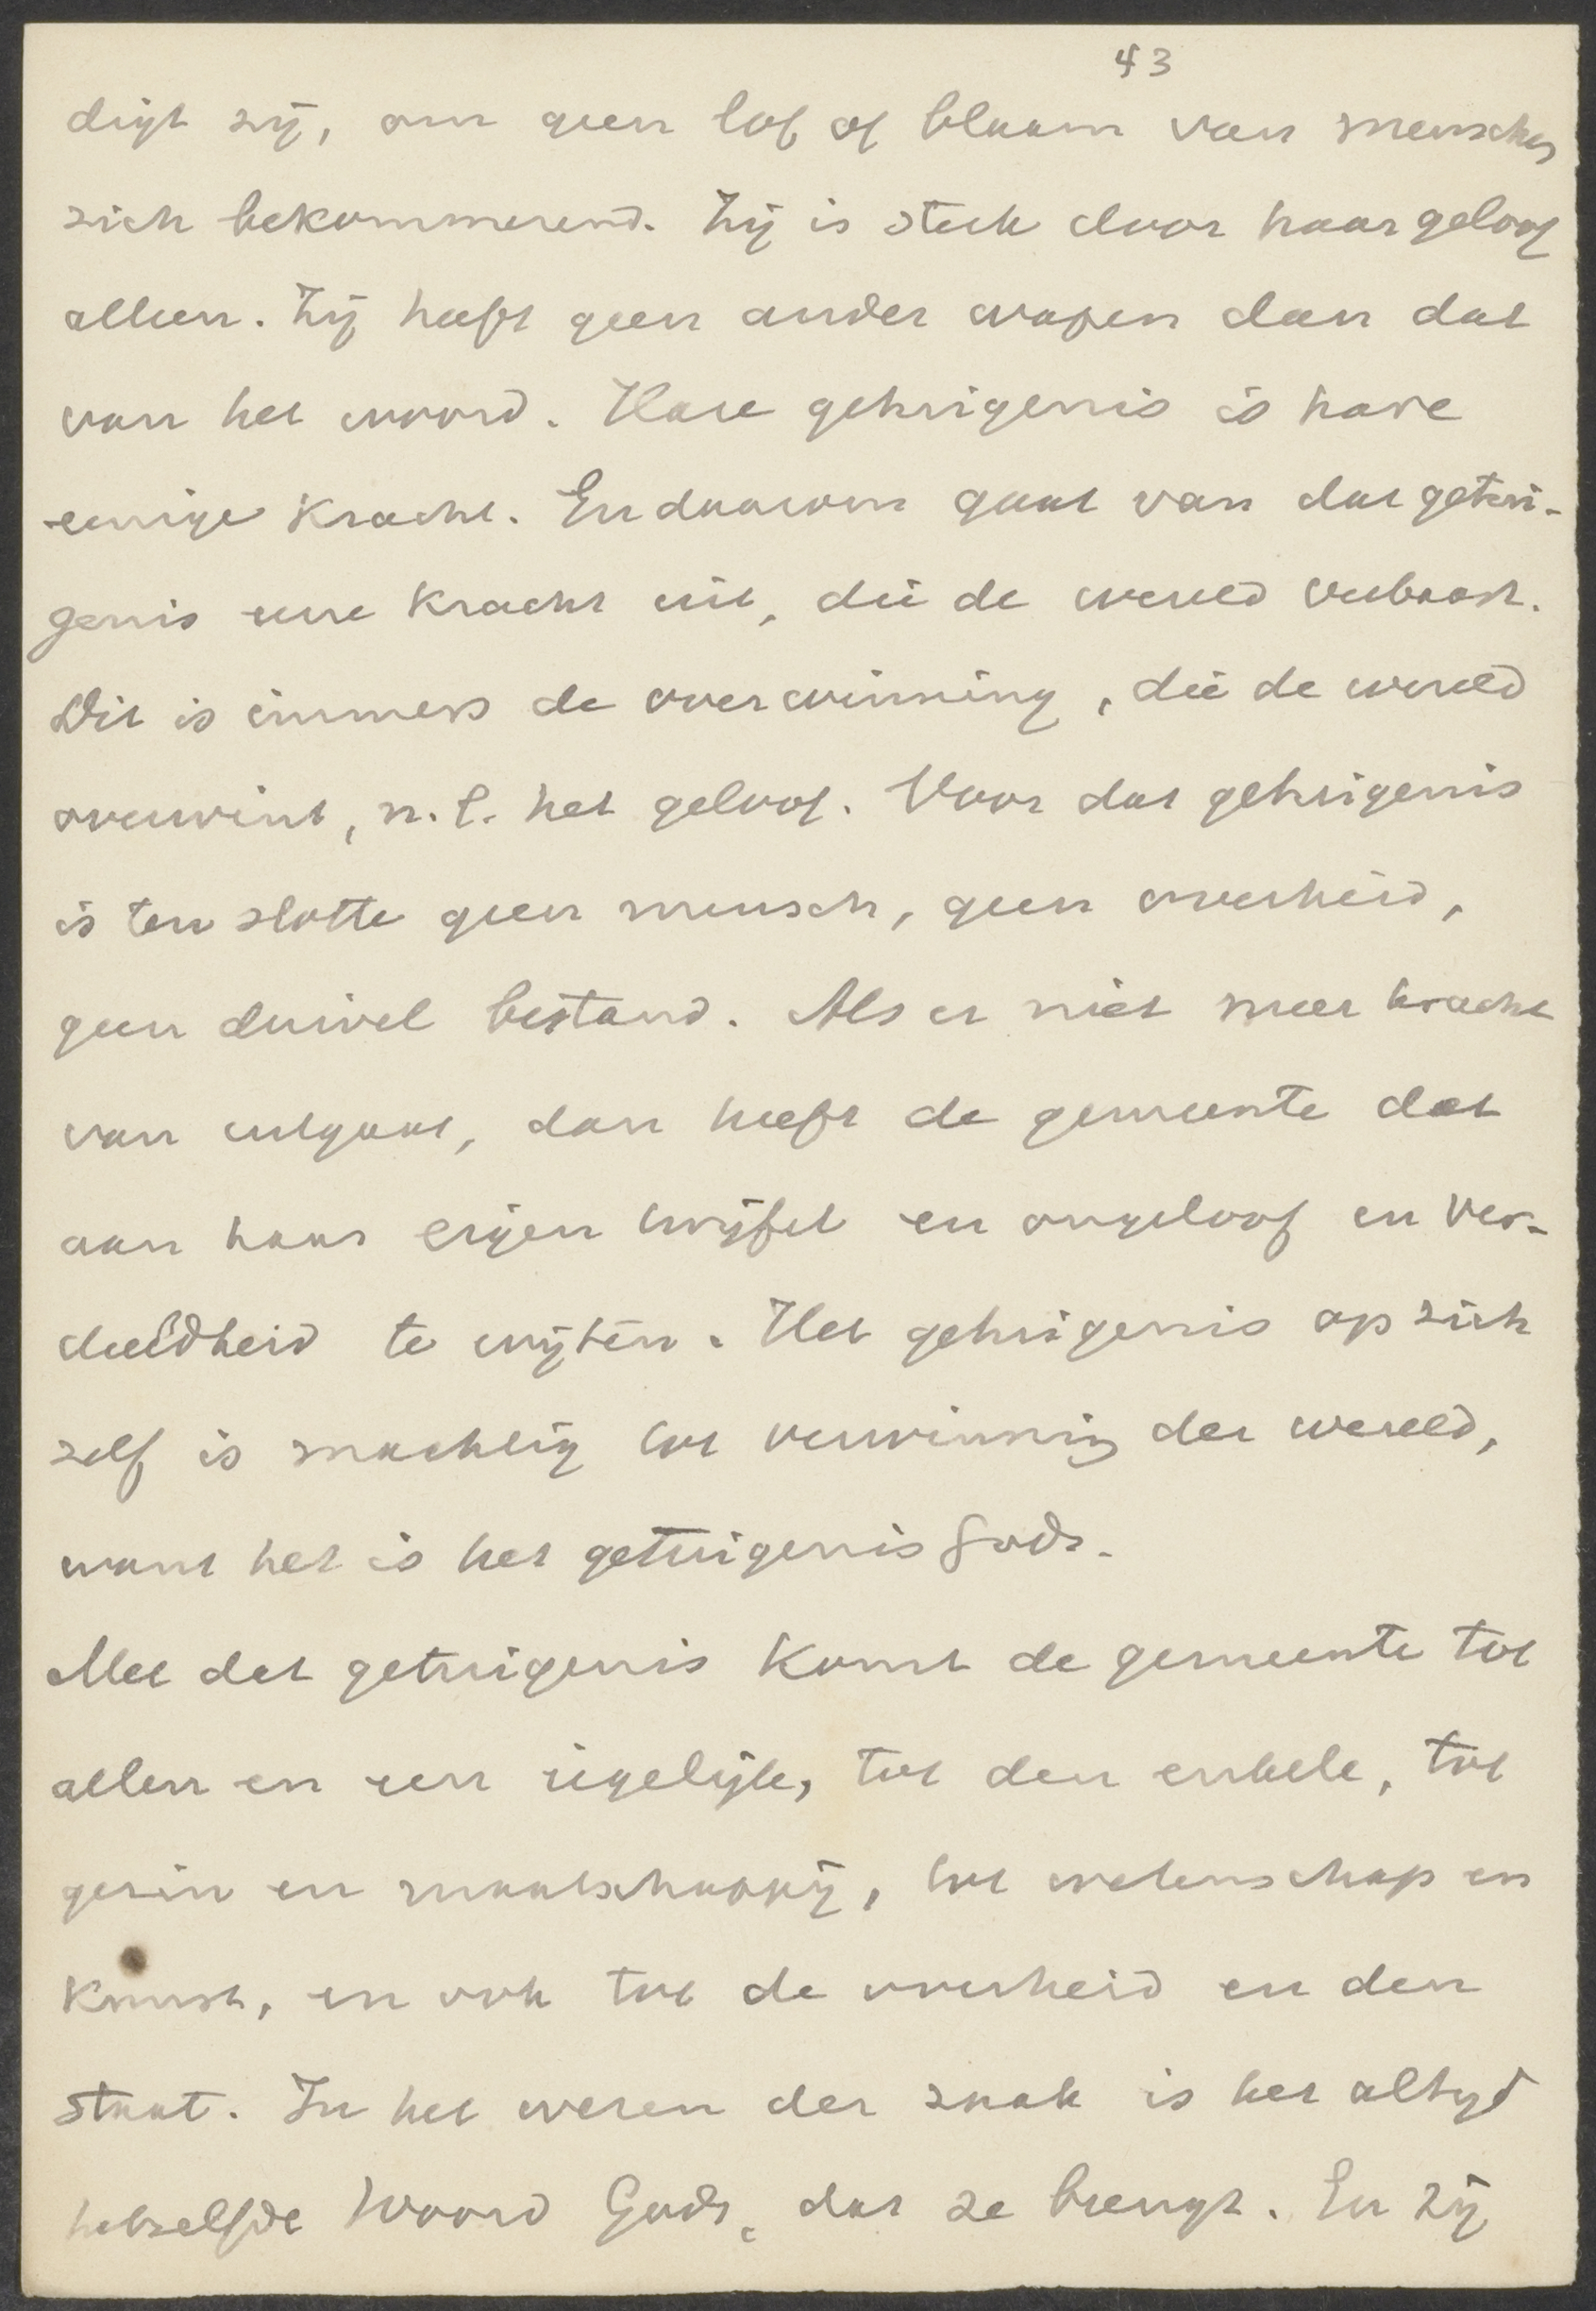 43
digt zij, om geen lof of blaam van menschen
zich bekommerend. Zij is sterk door haar geloof
alleen. Zij heeft geen ander wapen dan dat
van het woord. Hare getuigenis is hare
eenige kracht. En daarom gaat van dat getui-
genis eene kracht uit, die de wereld verbaast.
Dit is immers de overwinning, die de wereld
overwint, n.l. het geloof. Voor dat getuigenis
is ten slotte geen mensch, geen overheid,
geen duivel bestand. Als er niet meer kracht
van uitgaat, dan heeft de gemeente dat
aan haar eigen twijfel en ongeloof en ver-
deeldheid te wijten. Het getuigenis op zich
zelf is machtig tot verwinning der wereld,
want het is het getuigenis Gods.
Met dat getuigenis komt de gemeente tot
allen en een iegelijk, tot den enkele, tot
gezin en maatschappij, tot wetenschap en
kunst, en ook tot de overheid en den
staat. In het wezen der zaak is het altijd
hetzelfde Woord Gods, dat ze brengt. En zij